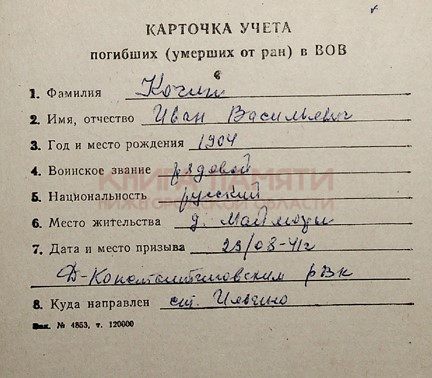 КАРТОЧКА УЧЕТА
погибших (умерших от ран) в ВОВ
1. Фамилия Кочин
2. Имя, отчество Иван Васильевич
3. Год и место рождения 1904
4. Воинское звание рядовой
КНИГА ПАМЯТИ
НИЖЕГОРОДСКОЙ ОБЛАСТИ
5. Национальность русский
6. Место жительства д.
7. Дата и место призыва 23/08-41г
Д-Константиновским рвк
8. Куда направлен ст. Ильино
Зак. № 4853, т. 120000